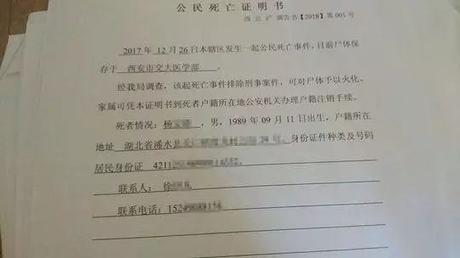 公民死亡证明书
调告书【2018】第005号
2017年12月26日本辖区发生一起公民死亡事件,目前尸体保
存于 西安市交大医学部
经我局调查,该起事件排除刑事案件,可对尸体予以火化、
家属可凭本证明书到死者户籍所在地公安机关办理户籍注销手续。
死者情况: 男,1989年09月11日出生,户籍所在
地址 湖北省浠水县 身份证件种类及号码
居民身份证 4211
联系人:
联系电话: